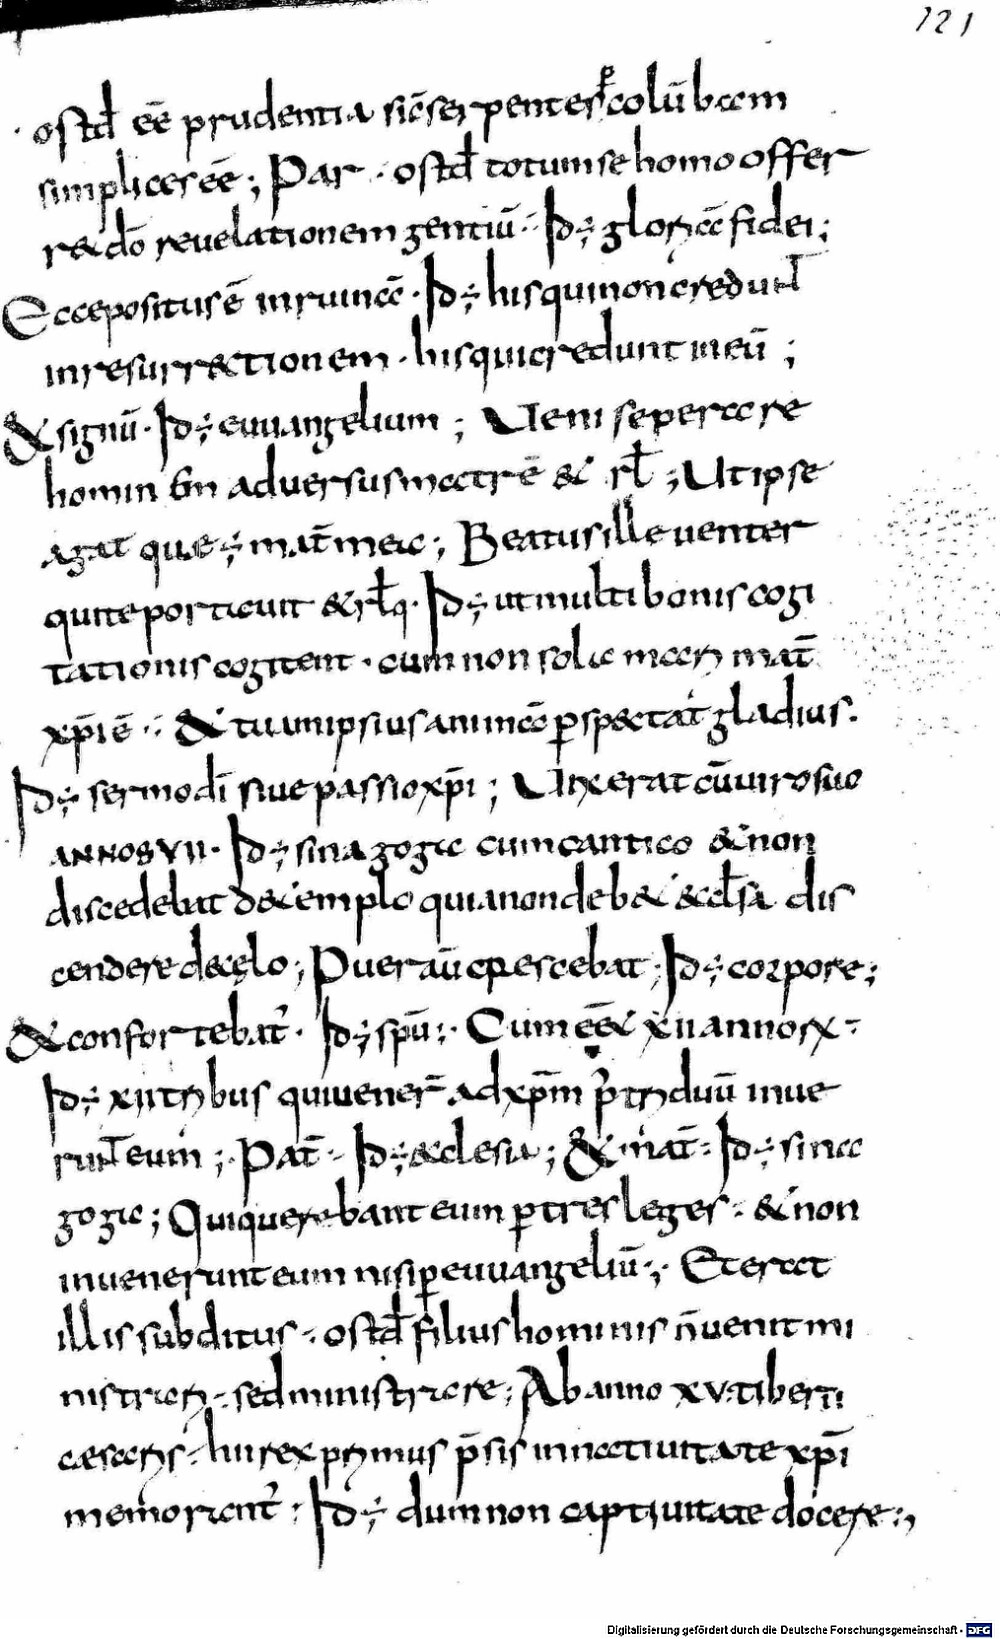 121
ostd̄ eē prudentia sic̄ serpentes ⁊ colūbam
simplices eē ; Par · ostd̄ totum se homo offer
r& dō reuelationem gentiū ·· Id ÷ gloria fidei ;
Ecce positus ē in ruinā · Id ÷ his qui non credunt
in resurrectionem · his qui credunt in eū ;
& signū · Id ÷ euuangelium ; Ueni separare
homin adversus matrē & rł ; Ut ipse
agat quae ÷ mat̄ mea ; Beatus ille venter
qui te portauit & rłq · Id ÷ ut multi bonis cogi
tationis cogitent · cum non sola maria mat̄
xp̄i ē ·· & tuum ipsius animā p̱ spectat gladius ·
Id ÷ sermo dī siue passio xp̄i ; Uixerat cū uiro suo
annos VII · Id ÷ sinagoga cum cantico & non
discedebat de templo quia non deb& ecłsa dis
cendere de celo ; Puer aū crescebat ; Id ÷ corpore ;
& confortabat' · Id ÷ spū ; · Cum eēt XII annorx ·
Id ÷ XII tribus qui uener̄ ad xp̄m p' triduū inue
runt eum ; · Pat̄ · Id ÷ ecclesia ; & mat̄ · Id ÷ sina
goga ; Qui querebant eum p̱ tres leges · & non
inuenerunt eum nisi p̱ euuangeliū · ; · Et erat
illis subditus · ostd̄ filius hominis n̄ uenit mi
nistrari · sed ministrare ; Ab anno XV · tiberii
caesaris · hii rex primus p̄sis in natiuitate xp̄i
memorant' · Id ÷ dum non captiuitate docere ;
Digitalisierung gefördert durch die Deutsche Forschungsgemeinschaft - DFG